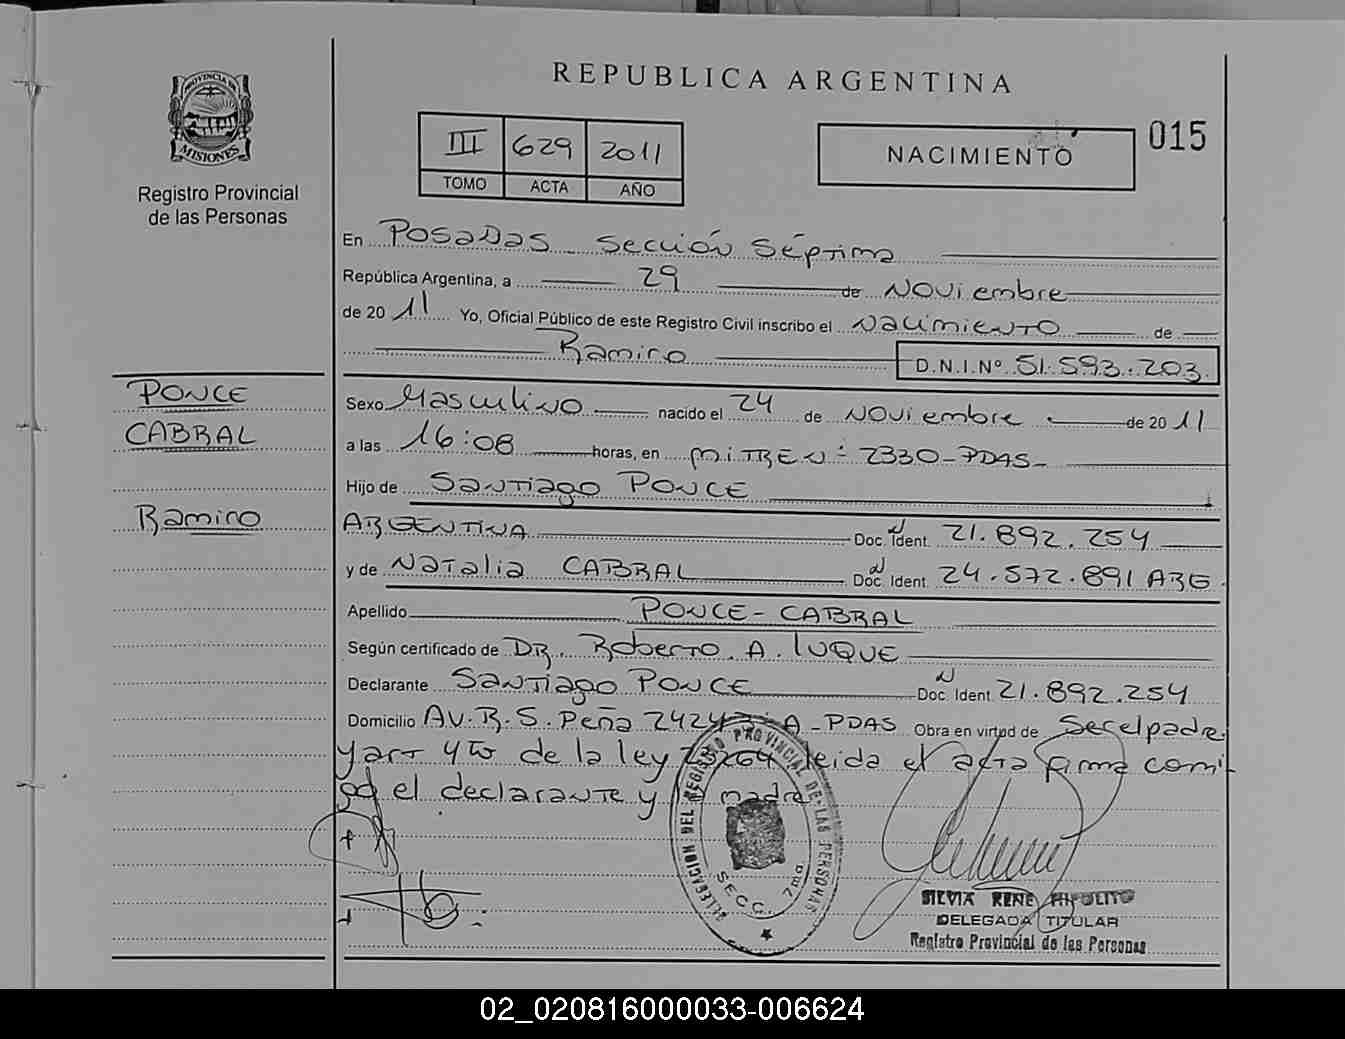 REPUBLICA ARGENTINA
PROVINCIA DE
MISIONES
Registro Provincial
de las Personas
III 629 2011
TOMO ACTA AÑO
NACIMIENTO
015
En Posadas Sección Séptima
República Argentina, a 29 de Noviembre
de 2011 Yo, Oficial Público de este Registro Civil inscribo el Nacimiento de
Ramiro D.N.I.Nº 51.593.203
PONCE
CABRAL
Ramiro
Sexo Masculino nacido el 24 de Noviembre de 2011
a las 16:08 horas, en MiTREN: 2330-PDAS-
Hijo de Santiago PONCE
ARGENTINA Doc. Ident. 21.892.254
y de Natalia CABRAL Doc. Ident. 24.572.891 ARG.
Apellido PONCE-CABRAL
Según certificado de DR. Roberto A. LUQUE
Declarante Santiago PONCE Doc. Ident. 21.892.254
Domicilio AV. R. S. Peña A-PDAS Obra en virtud de Serelpadre
yart 4to de la ley leida el acta firma comi
go el declarante y madre
DELEGACION DEL REGISTRO PROVINCIAL DE LAS PERSONAS
SECC. 7ma
SILVIA RENE HIPOLITO
DELEGADA TITULAR
Registro Provincial de las Personas
02_020816000033-006624